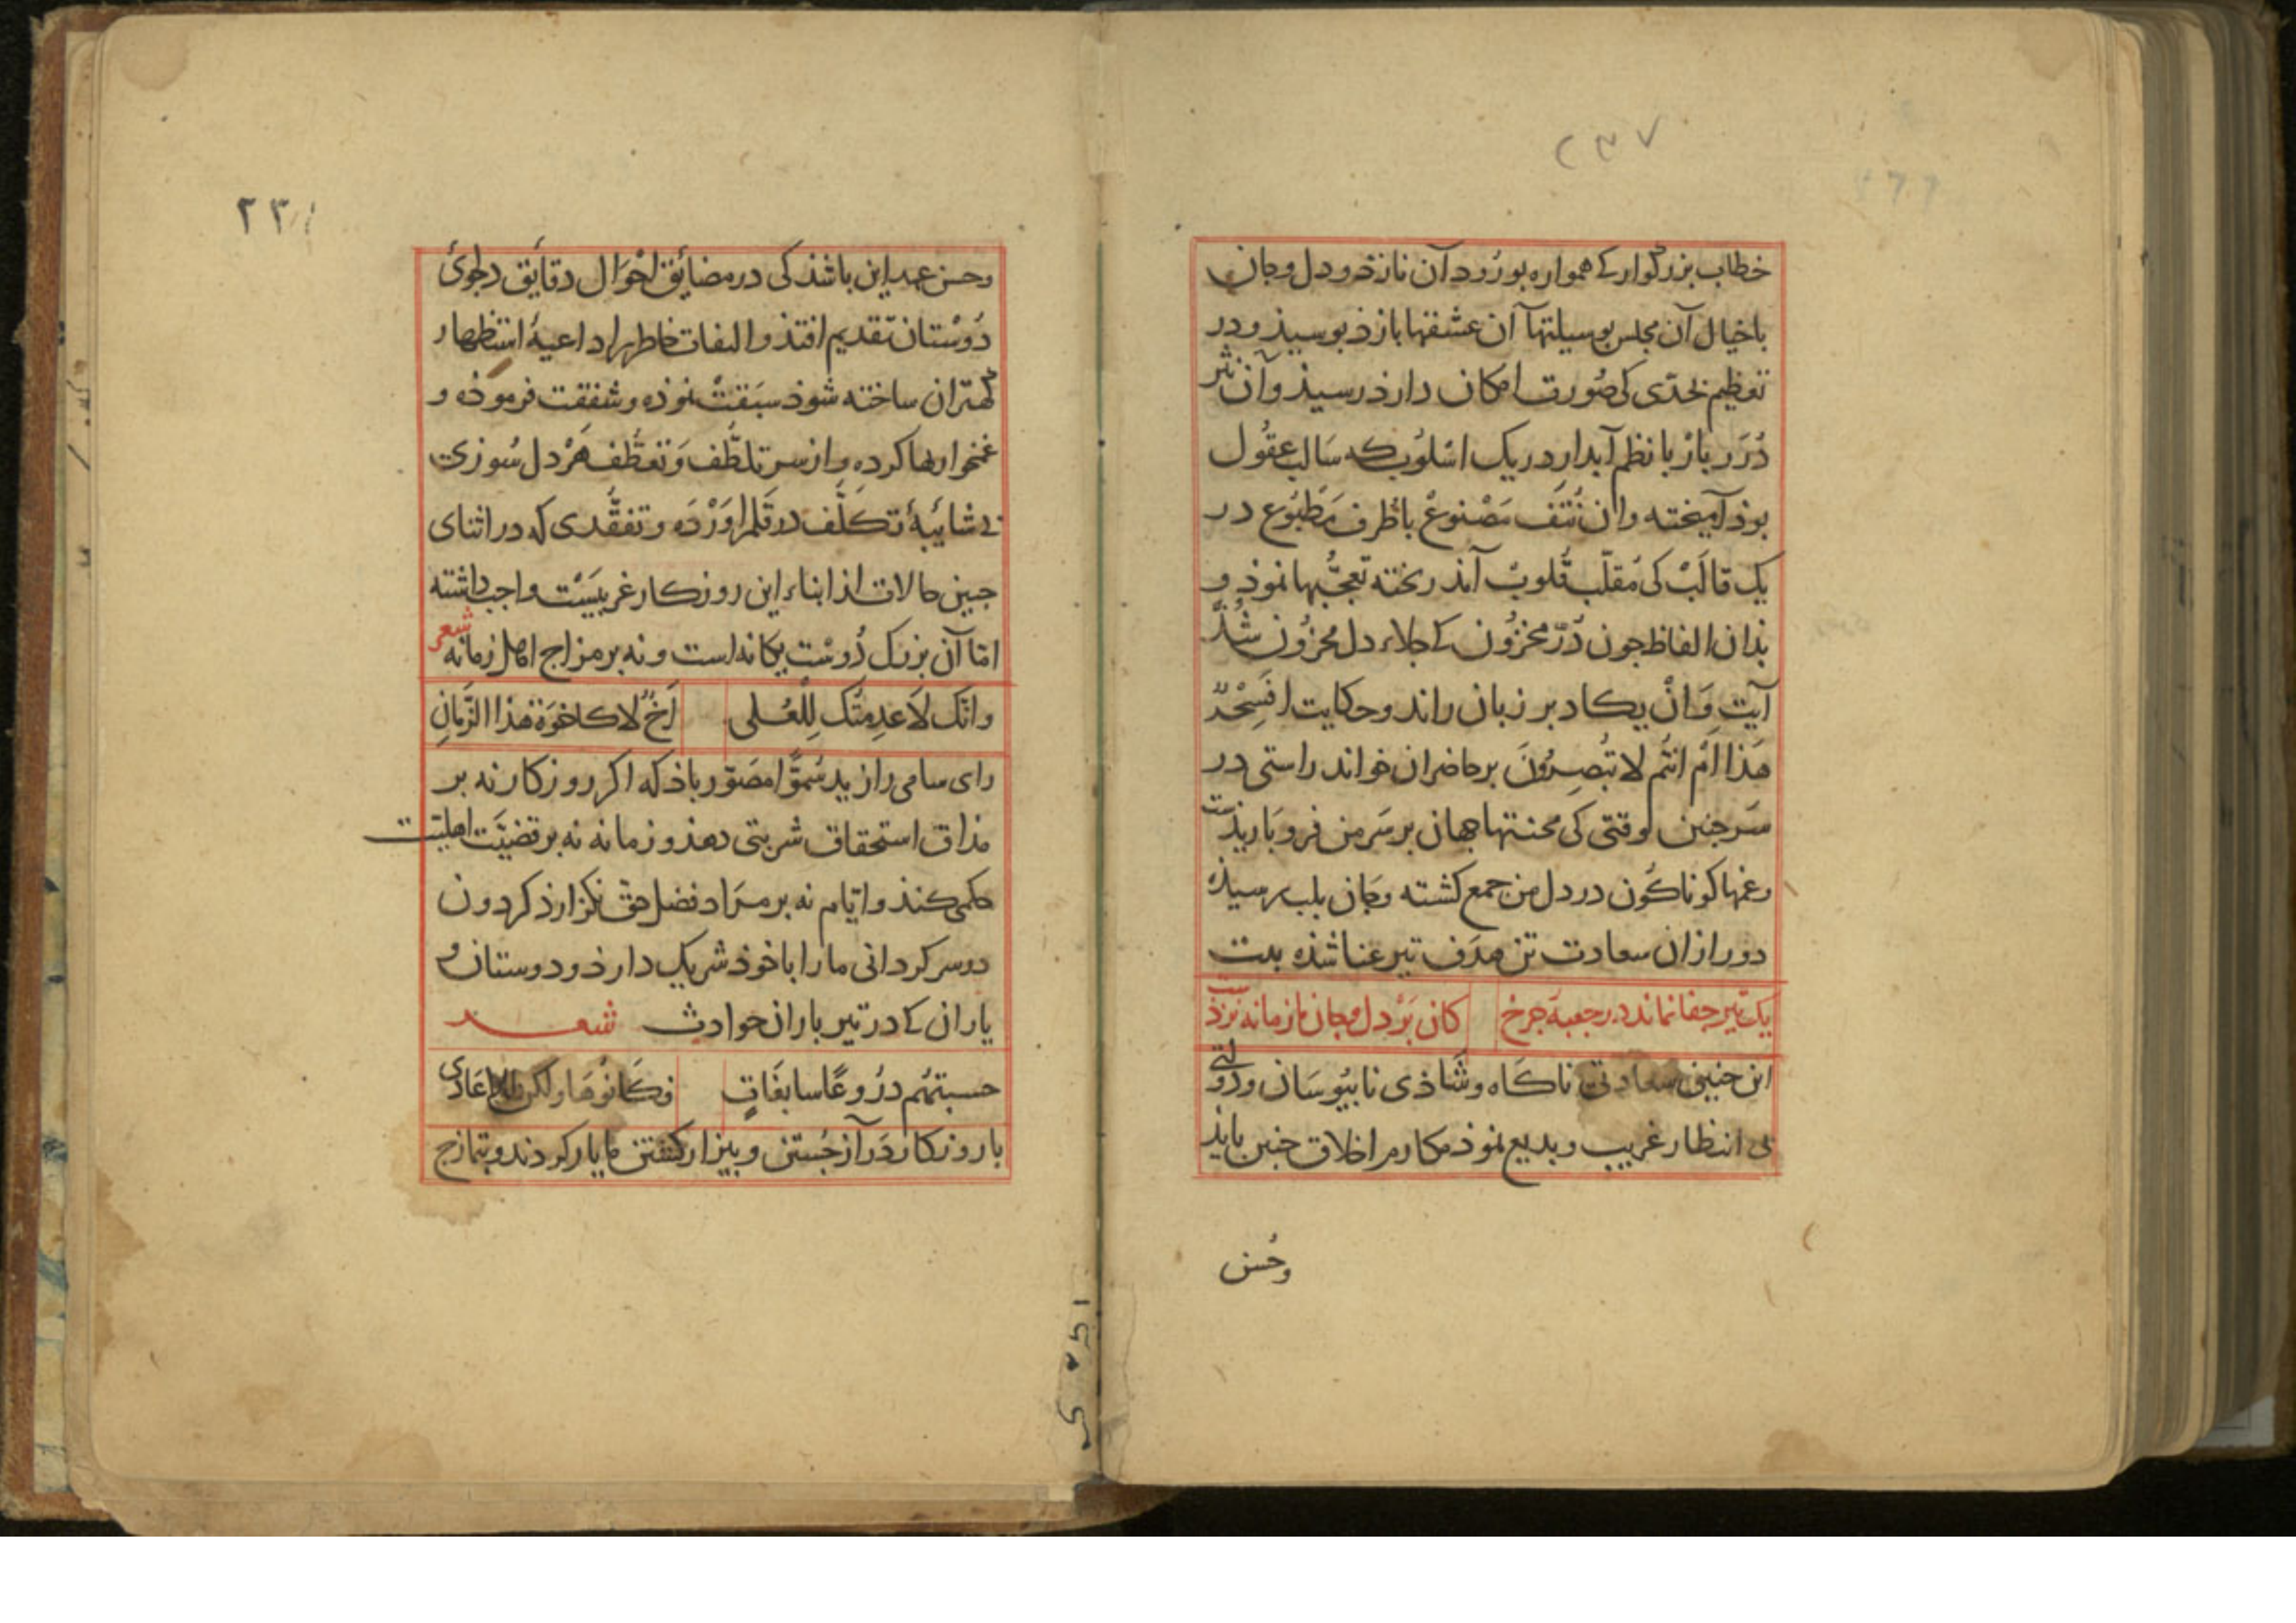 ۲۳۷
خطاب بزرگوار که همواره بورود آن نازد و دل و جان
با خیال آن مجلس بوسیلتها آن عشقها بازد بوسید و در
تعظیم بحدّی کی صُورت امکان دارذ رسید و آن نثر
دُرَر بار با نظم آبدار در یک اسْلوب که سَالب عقُول
بوذ آمیخته و آن نُتَف مَصْنوعْ باطُرف مَطبُوع در
یک قالَبْ کی مُقلّب قُلوبْ آمذ ریخته تعجّبها نموذ و
بذان الفاظ جون دُرّ مخزُون که جلاء دل محزُون شُد
آیت وَ انْ یکاد بر زبان راند و حکایت افَسِحْرٌ
هَذا اَمْ انتُم لا تُبْصِرُونَ بر حاضران خواند راستی در
سَر جنین وقتی کی محنتها جهان بر سَر من فرو بَاریذست
و غمها کوناکُون در دل من جمع کشته و جان بلب رسیذه
دور از ان سعادت تن هدَف تیر عنا شذه بیت
یک تیر جفا نماند در جعبهٔ جرخ کان بَرْ دل و جان ما زمانه نزذست
این جنین سعادتی ناکَاه و شَاذی نابیُوسَان و دولتی
بی انتظار غریب و بدیع نموذ مکارم اخلاق جنین بایذ
وحُسن
۲۳۱
و حسن عهد این باشذ کی در مضائق احْوَال دقایق دلجوئ
دُوسْتان تقدیم افتذ و التفات خاطر را داعیهٔ استظهار
کهتران ساخته شوذ سبَقتْ نموذه و شفقت فرموذه و
غمخواریها کرده و از سر تلطّف وَ تعطّف هَرْ دل سُوزی
بی شایبهٔ تکلّف در قَلم اوَرْدَه و تفقّدی که در اثنای
جنین حالات از ابناء این روزکار غریبَسْت واجب داشته
امّا آن بزرک دُوسْت یکانه است و نه بر مزاج اهل زمانه شعر
وانّک لَا عدِمتُک لِلْعُلی اَخٌ لا کاخوَة هَذا الزّمانِ
رای سامی را زید سُمُوًّا مصَوّر باذ که اکر روزکار نه بر
مذاق استحقاق شربتی دهذ و زمانه نه بر قضیَّت اهلیّت
حکمی کنذ و ایّام نه بر مرَاد فضل حق نکزارذ کردون
در سرکردانی ما را با خوذ شریک دارذ و دوستان و
یاران که در تیر باران حوادث شعر
حسبتهُم درُوعًا سابغَاتٍ فکَانُوهَا ولکن للاعَادی
با روزکار دَر آزجُستن و بیزار کشتن ما یار کردند و بتمازج